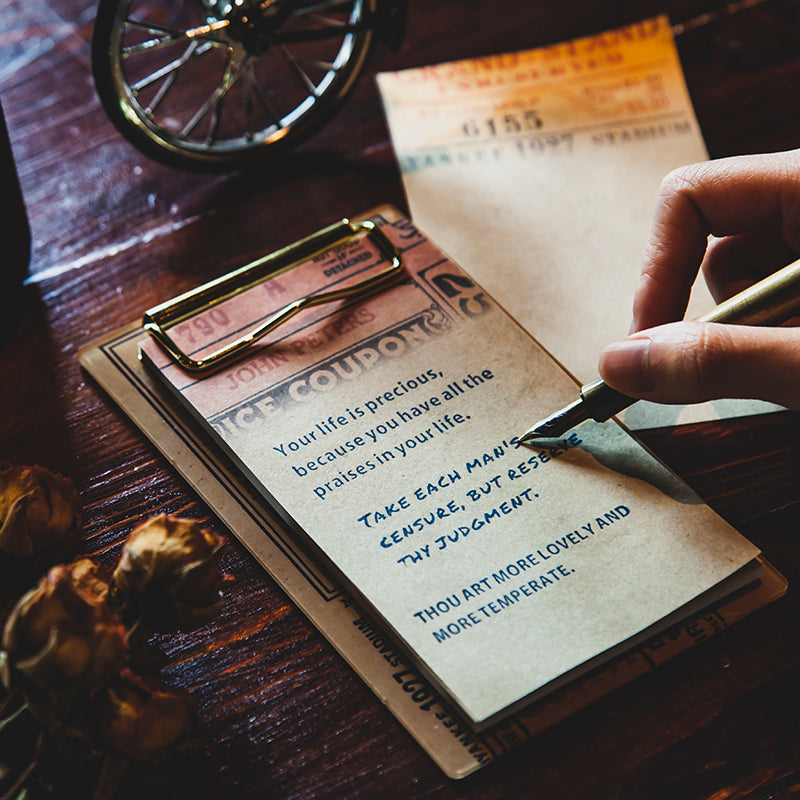 GRAND-STAND
UNRESERVED
6155
YANKEE 1927 STADIUM
NOT GOOD
IF
DETACHED
790 A
JOHN PETERS
ICE COUPON
Your life is precious,
because you have all the
praises in your life.
TAKE EACH MAN'S
CENSURE, BUT RESERVE
THY JUDGMENT.
THOU ART MORE LOVELY AND
MORE TEMPERATE.
YANKEE 1927 STADIUM